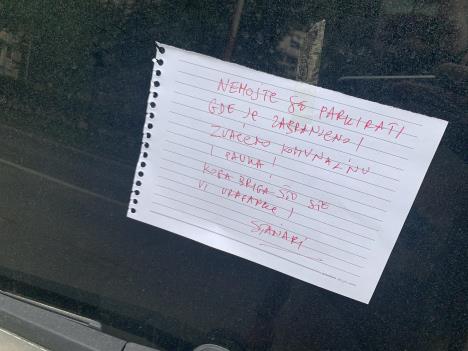 NEMOJTE SE PARKIRATI
GDE JE ZABRANJENO!
ZVAĆEMO KOMUNALNU
I PAUKA!
KOGA BRIGA ŠTO STE
VI
STANARI